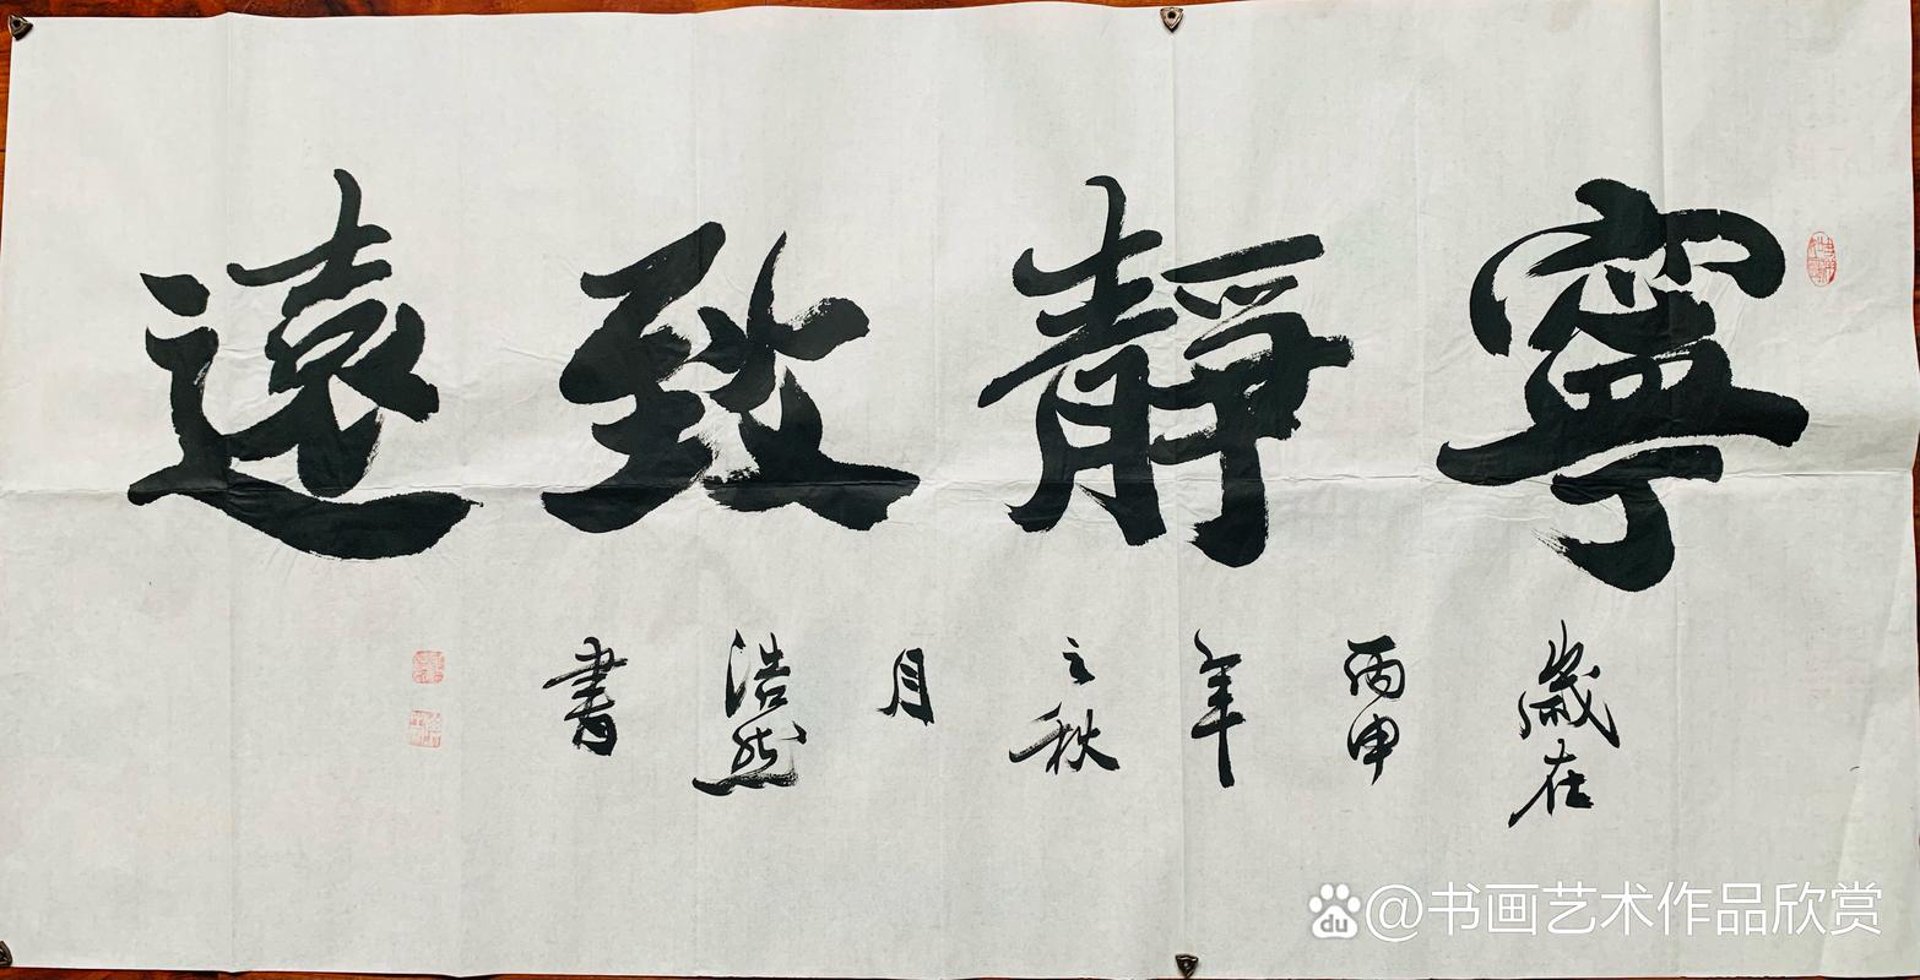 寧靜致遠
歲在丙申年之秋月浩然書
@书画艺术作品欣赏